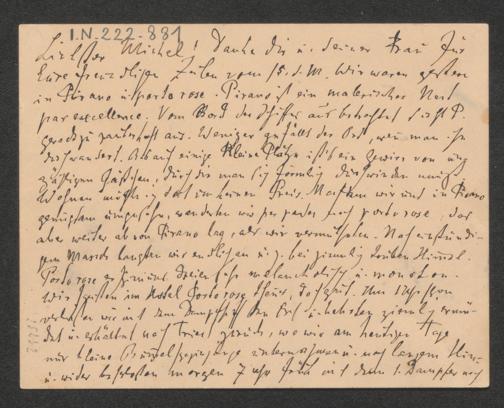 I.N. 222.881
Liebster Michel! Danke dir u. deiner Frau für
Eure freundlichen Zeilen vom 15. d. M. Wir waren gestern
in Pirano u. Portorose. Pirano ist ein malerisches Nest
par excellence. Vom Bord des Schiffes aus betrachtet sieht P.
geradezu zauberhaft aus. Weniger gefällt der Ort, wenn man ihn
durchwandert. Bis auf einige kleine Plätze ist's ein Gewirr von un-
zähligen Gässchen, durch die man sich förmlich durchwinden muss.
Wohnen möcht' ich dort um keinen Preis. Nachdem wir uns in Pirano
genugsam umgesehen, wanderten wir per pedes nach Portorose, das
aber weiter ab von Pirano lag, als wir vermutheten. Nach einstündi-
gem Marsch langten wir endlich an u. z. bei ziemlich trübem Himmel.
Portorose melancholisch u. monoton.
Wir speisten im Hotel Portorose theuer, doch gut. Um Uhr
wir mit dem Dampfer den Ort u. ziemlich ermü-
det u. nach Triest zurück, wo wir am heutigen Tage
nur kleine Bummelspaziergänge unternahmen u. nach langem Hin-
u. wider beschlossen morgen 7 Uhr früh mit dem 1. Dampfer nach